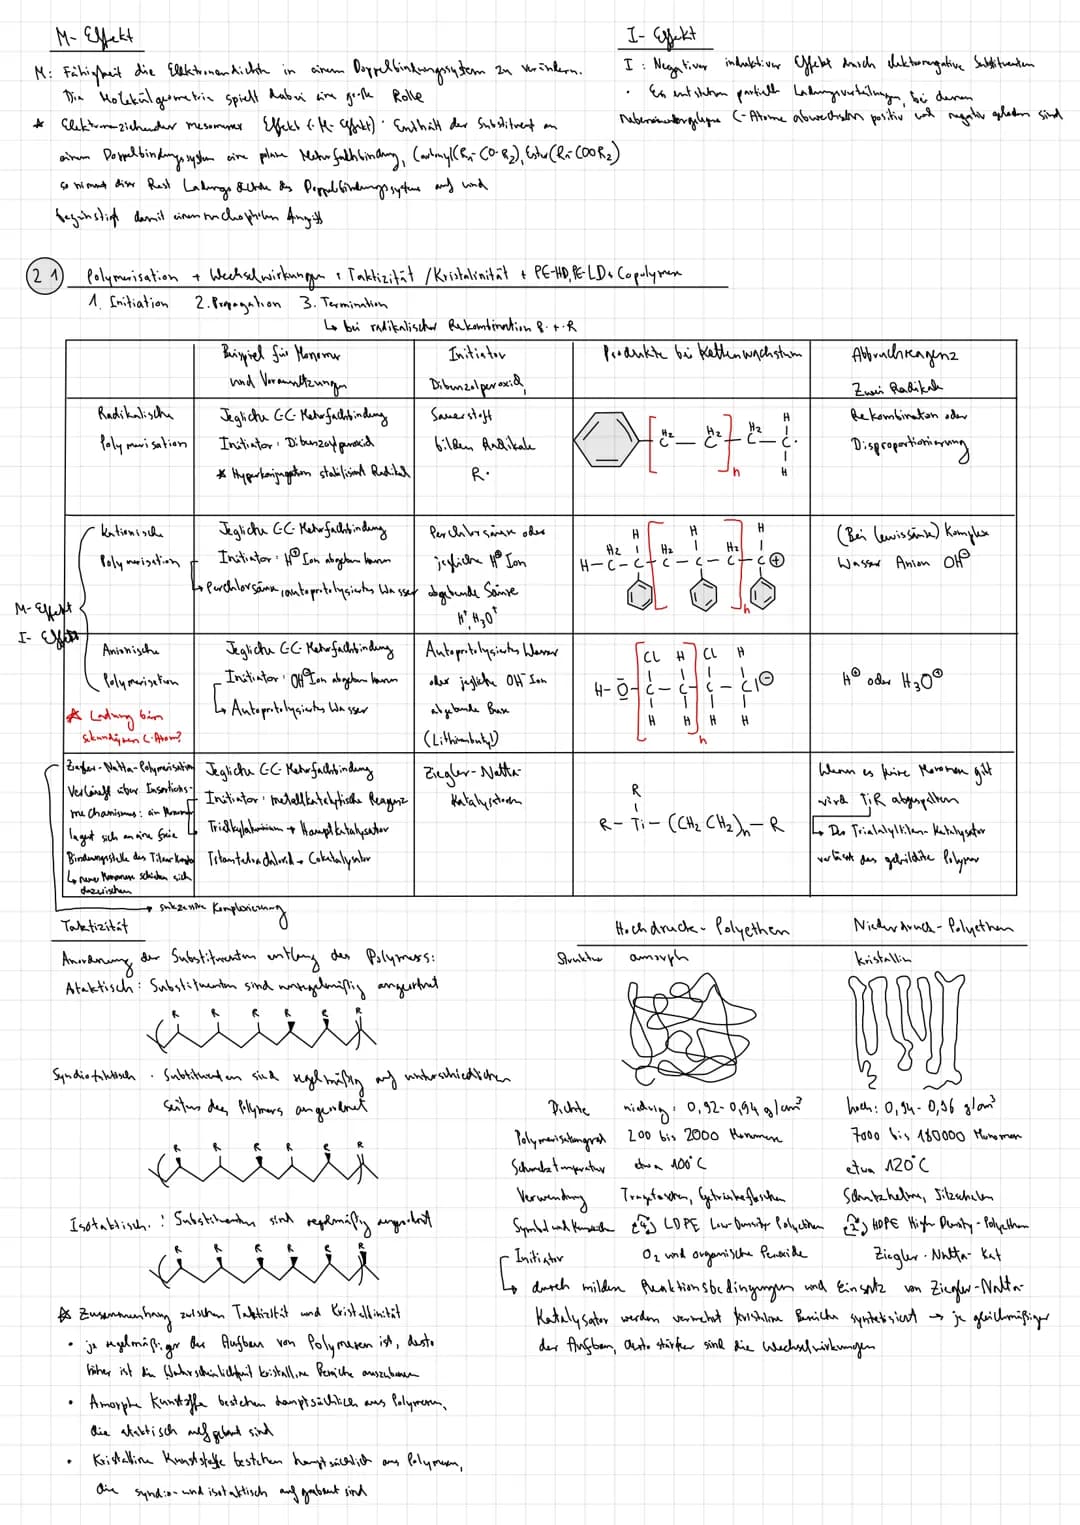 M- Effekt
M: Fähigkeit die Elektronendichte in einem Doppelbindungssystem zu verändern.
Die Molekülgeometrie spielt dabei eine große Rolle
* Elektronenziehender mesomerer Effekt (-M-Effekt): Enthält der Substituent an
einem Doppelbindungssystem eine polare Mehrfachbindung, Carbonyl(R₁-CO-R₂), Ester(R₁-COOR₂)
so nimmt dieser Rest Ladungsdichte des Doppelbindungssystems auf und
begünstigt damit einen nucleophilen Angriff
I- Effekt
I: Negativer induktiver Effekt durch elektronegative Substituenten
• Es entstehen partielle Ladungsverteilungen, bei denen
nebeneinandergelegene C-Atome abwechselnd positiv und negativ geladen sind
2 1 Polymerisation + Wechselwirkungen + Taktizität /Kristalinität + PE-HD, PE-LD + Copolymere
1. Initiation 2. Propagation 3. Termination
↳ bei radikalischer Rekombination R· + ·R
Beispiel für Monomer
und Voraussetzungen
Initiator
Dibenzolperoxid,
Produkte bei Kettenwachstum
Abbruchreagenz
Zwei Radikale
Radikalische
Polymerisation
Jegliche C-C-Mehrfachbindung
Initiator: Dibenzoylperoxid
* Hyperkonjugation stabilisiert Radikal
Sauerstoff
bilden Radikale
R·
H₂ C H₂ C n H₂ C H C· H
Rekombination oder
Disproportionierung
M-Effekt
I- Effekt
Kationische
Polymerisation
Jegliche C-C-Mehrfachbindung
Initiator: H⊕ Ion abgeben kann
↳ Perchlorsäure, autoprotolysiertes Wasser
Perchlorsäure oder
jegliche H⊕ Ion
abgebende Säure
H⁺, H₃O⁺
H H H
H₂ H₂ H₂
H-C-C-C-C-C-C⊕
n
(Bei Lewissäure) Komplex
Wasser Anion OH⊖
Anionische
Polymerisation
* Ladung beim
sekundären C-Atom?
Jegliche C-C-Mehrfachbindung
Initiator: OH⊖ Ion abgeben kann
↳ Autoprotolysiertes Wasser
Autoprotolysiertes Wasser
oder jegliche OH⁻ Ion
abgebende Base
(Lithiumbutyl)
CL H CL H
H-O-C-C-C-C|⊖
H H H H
n
H⊕ oder H₃O⊕
Ziegler-Natta-Polymerisation
Verläuft über Insertions-
mechanismus: ein Monomer
lagert sich an eine freie
Bindungsstelle des Titan
↳ neue Monomere schieben sich
dazwischen
Jegliche C-C-Mehrfachbindung
Initiator: metallkatalytische Reagenz
→ Hauptkatalysator
Titantetrachlorid → Cokatalysator
Ziegler-Natta-
Katalysatoren
R
R-Ti-(CH₂CH₂)n-R
Wenn es keine Monomere gibt
wird TiR abgespalten
↳ Der Katalysator
verlässt das gebildete Polymer
→ sukzessive Komplexierung
Taktizität
Anordnung der Substituenten entlang des Polymers:
Ataktisch: Substituenten sind unregelmäßig angeordnet
R R R R R R
Syndiotaktisch: Substituenten sind regelmäßig auf unterschiedlichen
Seiten des Polymers angeordnet
R R R R R R
Isotaktisch: Substituenten sind regelmäßig angeordnet
R R R R R R
* Zusammenhang zwischen Taktizität und Kristallinität
• je regelmäßiger der Aufbau von Polymeren ist, desto
höher ist die Wahrscheinlichkeit kristalline Bereiche auszubauen
• Amorphe Kunstoffe bestehen hauptsächlich aus Polymeren,
die ataktisch aufgebaut sind
• Kristalline Kunststoffe bestehen hauptsächlich aus Polymeren,
die syndio- und isotaktisch aufgebaut sind
Hochdruck-Polyethen Niederdruck-Polyethen
Struktur amorph kristallin
Dichte niedrig: 0,92-0,94 g/cm³ hoch: 0,94-0,96 g/cm³
Polymerisationsgrad 200 bis 2000 Monomere 7000 bis 180000 Monomere
Schmelztemperatur etwa 100°C etwa 120°C
Verwendung Tragetaschen, Getränkeflaschen Schutzhelme, Sitzschalen
Symbol und Kurzzeichen 4 LDPE Low-Density Polyethen 2 HDPE High Density-Polyethen
Initiator O₂ und organische Peroxide Ziegler-Natta-Kat
↳ durch milden Reaktionsbedingungen und Einsatz von Ziegler-Natta-
Katalysator werden vermehrt kristalline Bereiche synthetisiert → je gleichmäßiger
der Aufbau, desto stärker sind die Wechselwirkungen